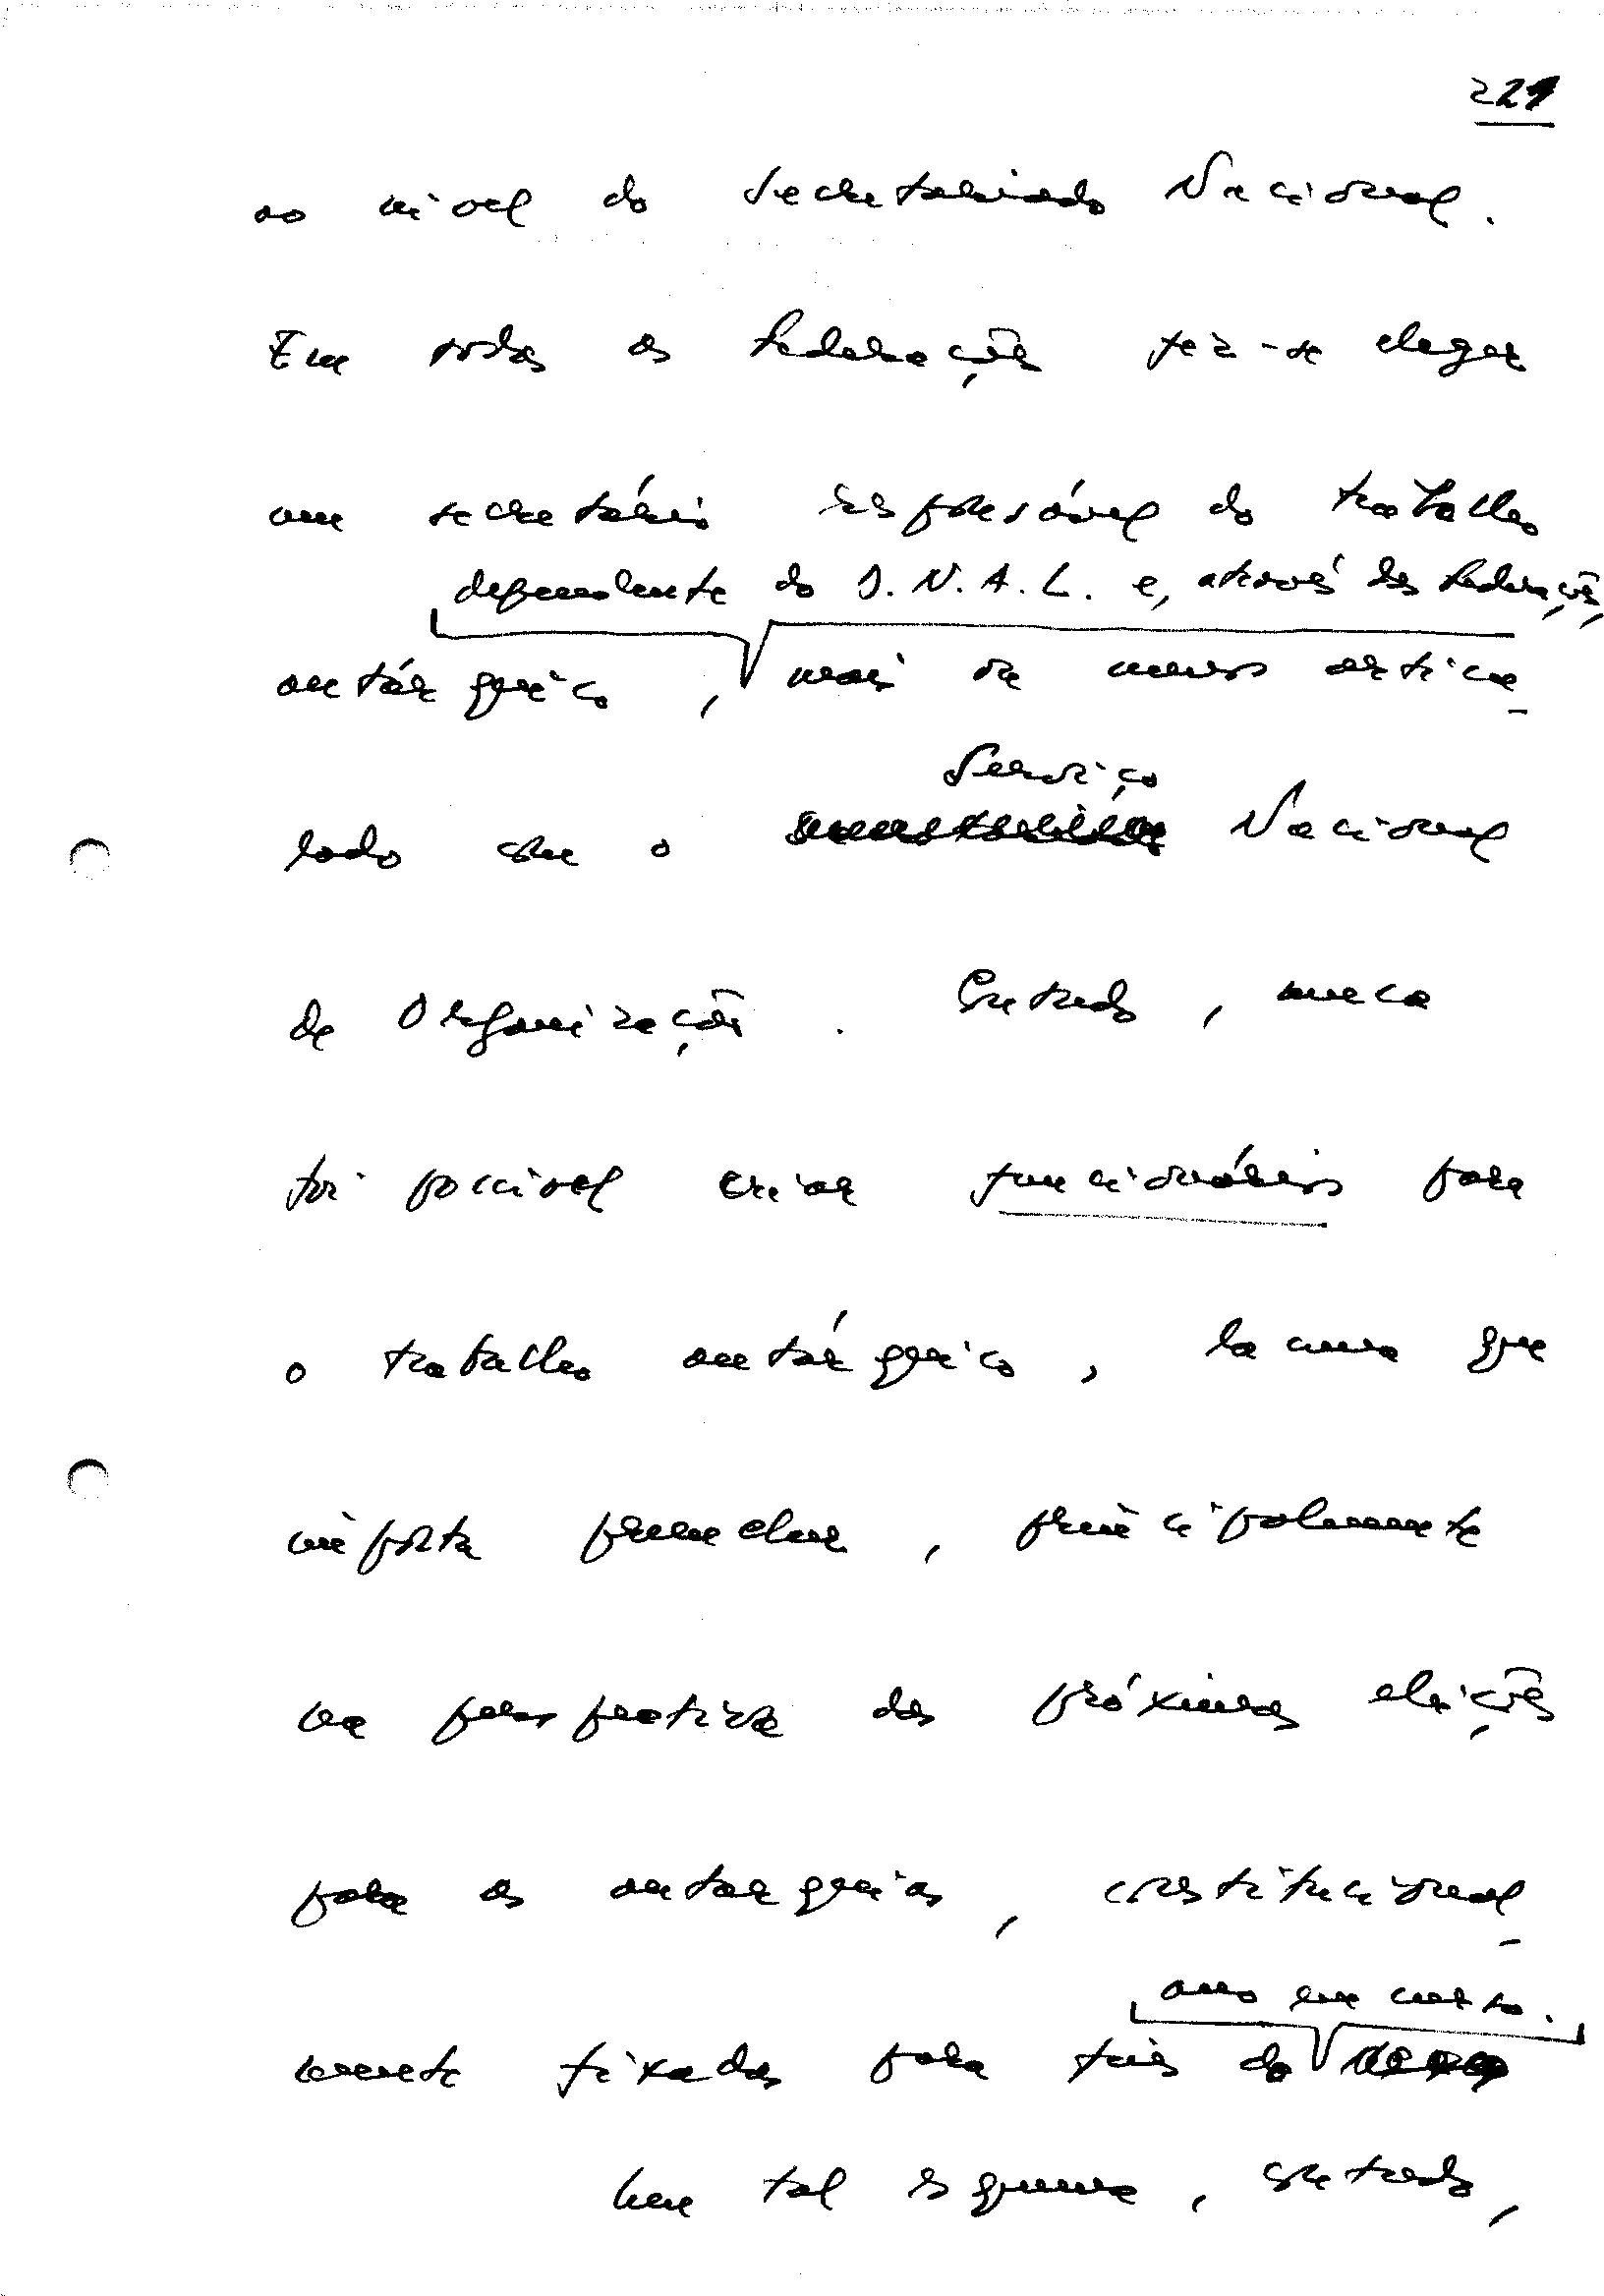 221
ao nível do Secretariado Nacional.
Em todas as Federações fez-se eleger
um secretário responsável do trabalho
dependente do S.N.A.L. e, através das Federações,
autárquico, mais ou menos articu-
lado com o Serviço Nacional
de Organização. Contudo, nunca
foi possível criar funcionários para
o trabalho autárquico, lacuna que
importa preencher, principalmente
na perspectiva das próximas eleições
para as autarquias, constitucional-
ano em curso.
mente fixadas para fins do
Num tal esquema, contudo,